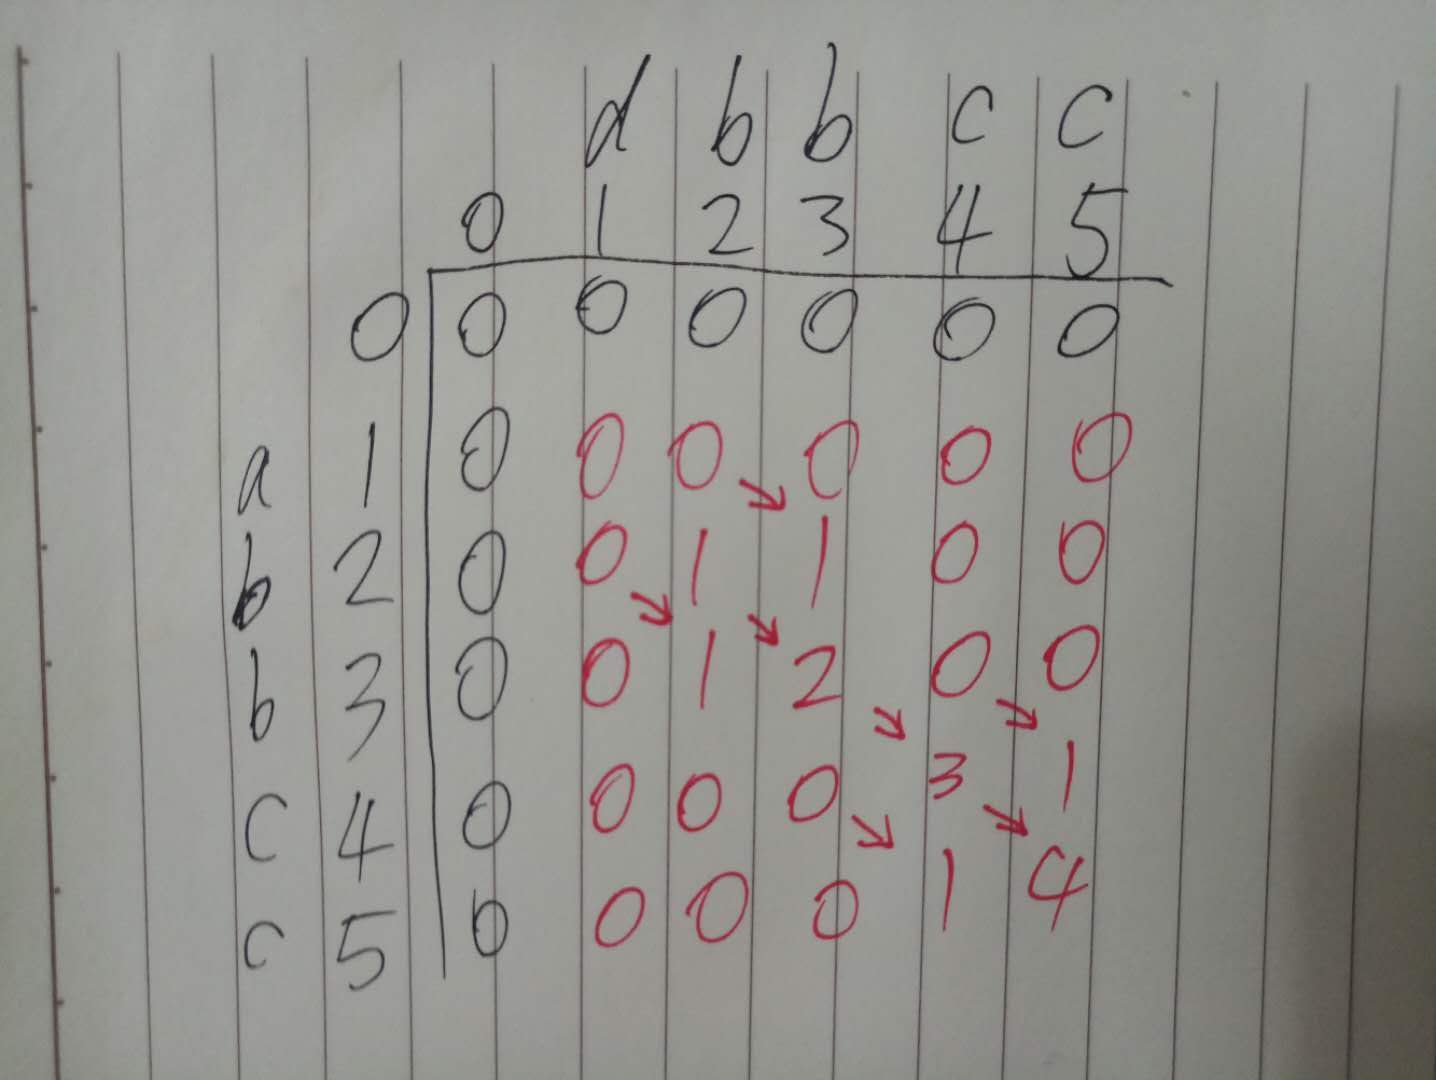 d b b c c
0 1 2 3 4 5
0 0 0 0 0 0 0
a 1 0 0 0 0 0 0
b 2 0 0 1 1 0 0
b 3 0 0 1 2 0 0
c 4 0 0 0 0 3 1
c 5 0 0 0 0 1 4